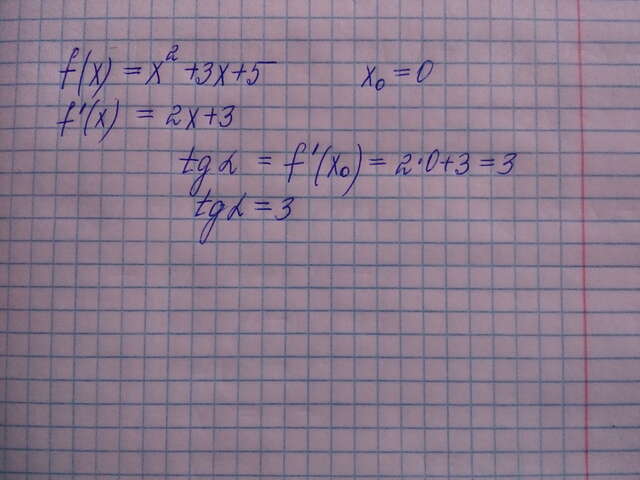 f(x) = x² + 3x + 5 x₀ = 0
f'(x) = 2x + 3
tg α = f'(x₀) = 2·0 + 3 = 3
tg α = 3